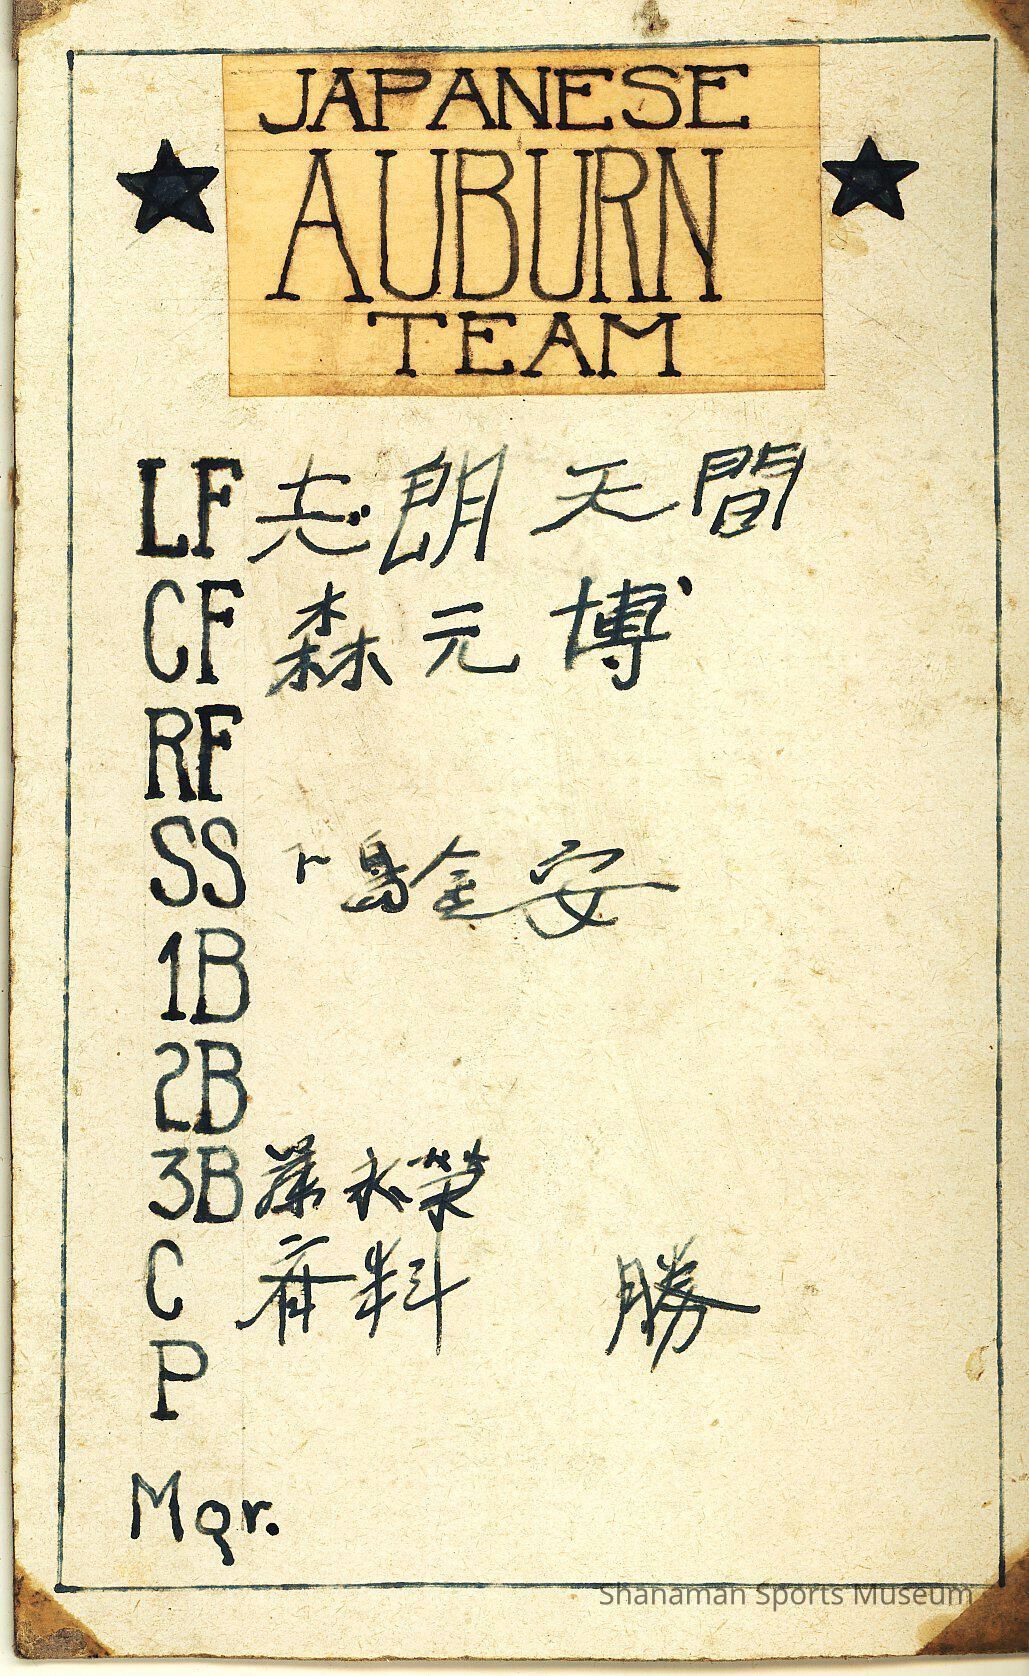 JAPANESE
AUBURN
TEAM
LF 志朗 天間
CF 森元 博
RF
SS 安
1B
2B
3B 永榮
C 料 勝
P
Mgr.
Shanaman Sports Museum